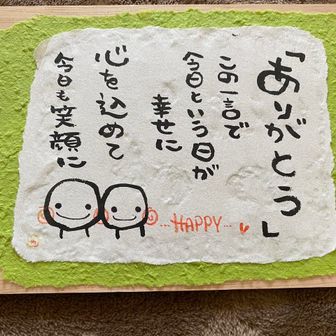 「ありがとう」
この一言で
今日という日が
幸せに
心を込めて
今日も笑顔に
...HAPPY...